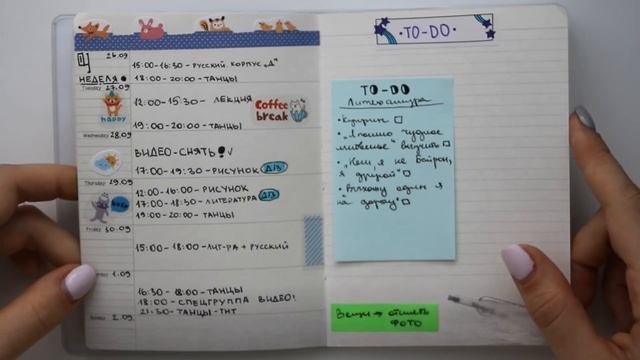 26.09
4 НЕДЕЛЯ
15:00-16:30 - РУССКИЙ. КОРПУС „Д"
18:00 - 20:00 - ТАНЦЫ
Tuesday 27.09
happy
12:00-15:30 - ЛЕКЦИЯ
Coffee break
19:00 - 20:00 - ТАНЦЫ
Wednesday 28.09
ВИДЕО-СНЯТЬ! v
17:00 - 19:30 - РИСУНОК Д/З
Thursday 29.09
12:00 - 16:00 - РИСУНОК
17:00 - 18:30 - ЛИТЕРАТУРА Д/З
19:00 - 20:00 - ТАНЦЫ
Friday 30.09
15:00 - 18:00 - ЛИТ-РА + РУССКИЙ
1.09
16:30 - 18:00 - ТАНЦЫ
18:00 - СПЕЦГРУППА ВИДЕО!
21:30 - ТАНЦЫ - ТНТ
2.09
·TO-DO·
TO-DO
Литература
• Куприн
• „Я помню чудное
мгновенье" выучить
• „Нет, я не Байрон,
я другой"
• „Выхожу один я
на дорогу"
Вещи → отшить
ФОТО